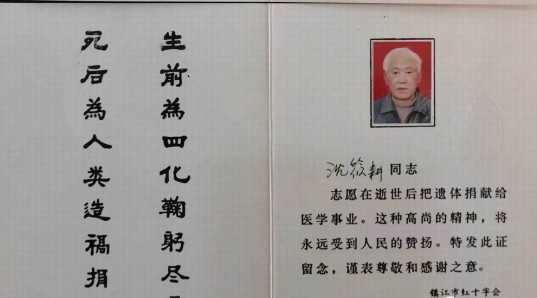 生前為四化鞠躬尽
死后為人类造福捐
沈筱耕同志
志愿在逝世后把遗体捐献给
医学事业。这种高尚的精神，将
永远受到人民的赞扬。特发此证
留念，谨表尊敬和感谢之意。
镇江市红十字会